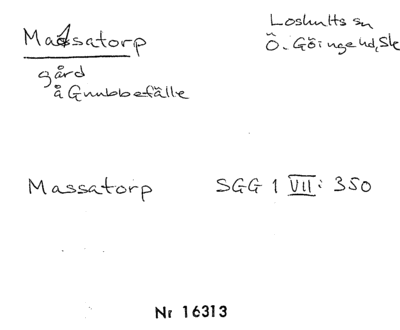 Madsatorp
Loshults sn
Ö. Göinge hd, Sk
gård
å Gnubbefälle
Massatorp SGG 1 VII: 350
Nr 16313